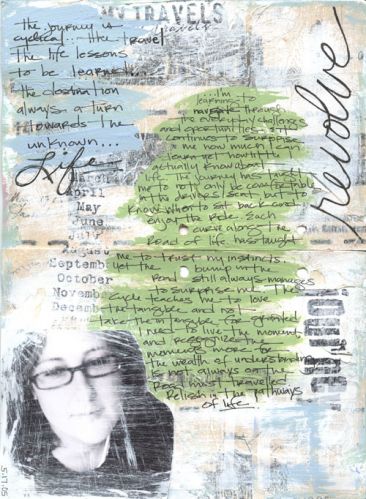 MY TRAVELS
travels
the journey is
cyclical... the travel
the life lessons
to be learned...
the destination
always a turn
towards the
unknown...
Life
revolve
March
April
May
June
July
August
September
October
November
December
...I'm
learning to
navigate through
the everyday challenges
and opportunities. It
continues to surprise
me how much I can
learn yet how little
actually know about
life. The journey has taught
me to not only be comfortable
in the drivers seat but to
know when to sit back and
enjoy the ride. Each
curve along the
Road of life has taught
me to trust my instincts
yet the bump in the
Road still always manages
to surprise me. The
cycle teaches me to love
the tangible and not
take the tangible for granted
I need to live the moment
and recognize the
moments more to
the wealth of understanding
is not always on the
Road most travelled
Relish in the pathways
of life.
5.17.05